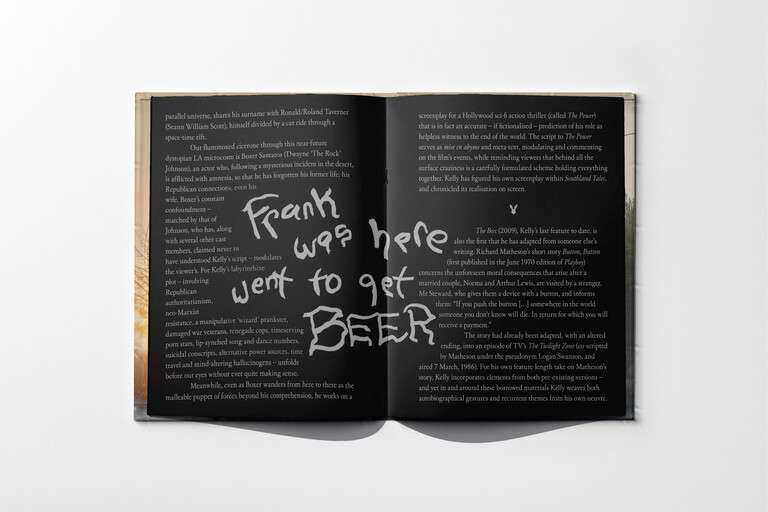 parallel universe, shares his surname with Ronald/Roland Taverner
(Seann William Scott), himself divided by a car ride through a
space-time rift.
Our flummoxed cicerone through this near-future
dystopian LA microcosm is Boxer Santaros (Dwayne ‘The Rock’
Johnson), an actor who, following a mysterious incident in the desert,
is afflicted with amnesia, so that he has forgotten his former life, his
Republican connections, even his
wife. Boxer’s constant
confoundment –
matched by that of
Johnson, who has, along
with several other cast
members, claimed never to
have understood Kelly’s script – modulates
the viewer’s. For Kelly’s labyrinthine
plot – involving
Republican
authoritarianism,
neo-Marxist
resistance, a manipulative ‘wizard’ prankster,
damaged war veterans, renegade cops, timeserving
porn stars, lip-synched song and dance numbers,
suicidal conscripts, alternative power sources, time
travel and mind-altering hallucinogens – unfolds
before our eyes without ever quite making sense.
Meanwhile, even as Boxer wanders from here to there as the
malleable puppet of forces beyond his comprehension, he works on a
Frank
was here
went to get
BEER
screenplay for a Hollywood sci-fi action thriller (called The Power)
that is in fact an accurate – if fictionalised – prediction of his role as
helpless witness to the end of the world. The script to The Power
serves as mise en abyme and meta-text, modulating and commenting
on the film’s events, while reminding viewers that behind all the
surface craziness is a carefully formulated scheme holding everything
together. Kelly has figured his own screenplay within Southland Tales,
and chronicled its realisation on screen.
The Box (2009), Kelly’s last feature to date, is
also the first that he has adapted from someone else’s
writing. Richard Matheson’s short story Button, Button
(first published in the June 1970 edition of Playboy)
concerns the unforeseen moral consequences that arise after a
married couple, Norma and Arthur Lewis, are visited by a stranger,
Mr Steward, who gives them a device with a button, and informs
them: “If you push the button [...] somewhere in the world
someone you don’t know will die. In return for which you will
receive a payment.”
The story had already been adapted, with an altered
ending, into an episode of TV’s The Twilight Zone (co-scripted
by Matheson under the pseudonym Logan Swanson, and
aired 7 March, 1986). For his own feature-length take on Matheson’s
story, Kelly incorporates elements from both pre-existing versions –
and yet in and around these borrowed materials Kelly weaves both
autobiographical gestures and recurrent themes from his own oeuvre.